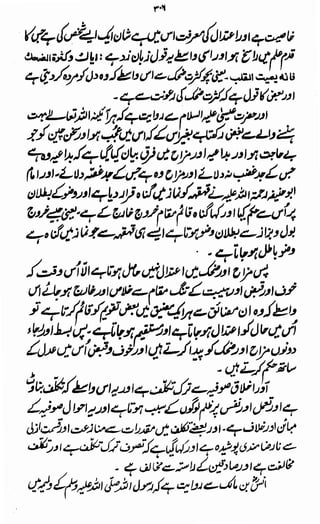 ۳۰۶
خاصیت ہے اور اعتدال کی معرفت اس میں ہے شان ایک ایسے شخص کی ہے جس کا
قدم علم میں راسخ ہو اور اسی واسطے یہ قول زبان زد ہے : ایاک و کثرة الضحک
فانه یمیت القلب یعنی بچو کثرت ضحک سے اس واسطے کہ وہ دل کو مردہ کر دیتی ہے
اور بعض کا قول ہے کہ کثرت ضحک کی رعونت سے ہے۔
اور حضرت عیسیٰ علیہ السلام سے روایت ہے کہ ہر آئینہ اللہ تعالےٰ بہت
ہنسنے والے سے بغض رکھتا ہے بغیر اس کے کہ اس میں عجب ہو اور سخن چین کو جو
بے حاجت ہو اور مداعبہ اور مزاح میں فرق بیان کیا گیا ہے کہ مداعبہ وہ ہے
جس کے جد غضب نہ دلائے اور مزاح وہ ہے جس کے جد غضب دلائے۔ اور امام
ابو حنیفہ رحمۃ اللہ علیہ نے قہقہہ کو نماز میں گناہ قرار دیا ہے اور وضو کے بطلان
پر اس سے حکم کیا اور کہا گناہ قائم مقام خروج خارج کے ہے۔ یعنی جیسے خروج
بول و براز سے بطلان وضو ہوتا ہے ایسے ہی قہقہہ سے جو نماز میں گناہ ہے
وضو باطل ہو جاتا ہے۔
پس مزاح اور ضحک میں اعتدال نہیں حاصل ہوتا ہے الا اُس وقت کہ
خوف اور قبض اور ہیبت کے تنگ مقام سے خلاص اور خارج ہو جائے اس
واسطے کہ وہ ان مضائق سے ہر ایک مضیق میں بعض تقویم کو قائم کرتا ہے تو
اُس میں حال کو اعتدال ہو جاتا ہے اور مستقیم ہو جاتا ہے۔ پس بسط اور رجاء
دونوں مزاح اور ضحک کو پیدا کرتے ہیں اور خوف و قبض اُس میں عدل کے
ساتھ حکم کرتے ہیں۔
اور اخلاق صوفیہ سے ترک تکلف ہے اور یہ اس واسطے کہ تکلف بناوٹ
ہے اور تعمل اور نفس پر ظلم لوگوں کے سبب ہوتا ہے اور یہ احوال صوفیہ کے
مبائن اور خلاف ہے۔ اور بعضے تکلف میں مقدرات سے منازعت اور قسمت ازلی
سے نا رضامندی پوشیدہ ہے اور کہا گیا ہے کہ تصوف ترک تکلف ہے اور تکلف
مخالفت ہے اور صادقین کے راستہ سے مخالف ہے۔
انس بن مالک سے روایت ہے کہ رسول اللہ صلی اللہ علیہ وسلم کے ولیمہ میں